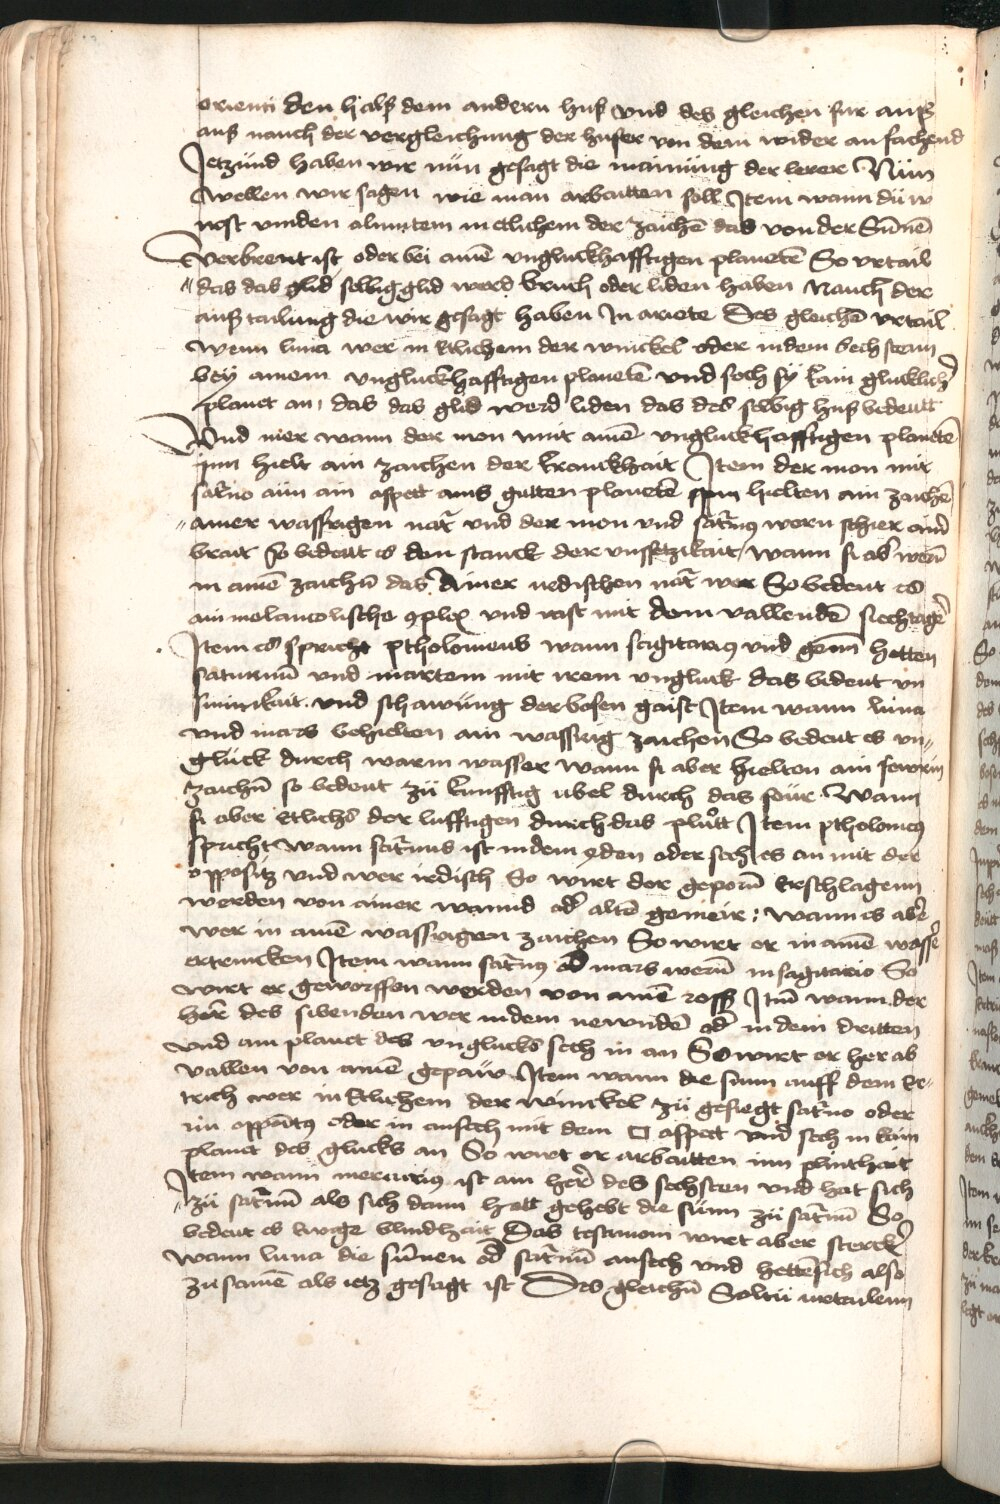 orienti den halß dem andern huß vnd des gleichen fur auß
auß nauch der vergleichung der huser von dem wider an fachend
Jetzund haben wir nun gesagt die mainung der lerer Nun
wellen wir sagen wie man arbaitten soll Item wann du w
rost vinden almutem in etlichem der zaichē das von der Sūnē
verbrent ist oder bei ainē vngluckhafftigen planetē So vrtail
das das glid selbig glid werd bruch oder liden haben Nauch der
auß tailung die wir gesagt haben In ariete Des gleichē vrtail
wenn luna wer in etlichem der winckel oder in dem sechsten
bey ainem vngluckhafftigen planetē vnd sech sy kain glucklichꝰ
planet an, das das glid werd liden das des selbig huß bedeutt
Vnd mer wann der mon mit ainē vngluckhafftigen planetē
inn hielt ain zaichen der kranckhait Item der mon mit
satn̄o aūn ain aspett ains gutten planetē hielten ain zaichē
ainer wassrigen nat̄ vnd der mon vnd satn̄ꝰ wern schier ainē
brait so bedeut es den stanck der vnssetzikait, wann si abꝰ werū
in ainē zaichū das Ainer irdischen nat̄ wer So bedeut es
ain melancolische ꝯplex vnd rast mit dem vallendē siechtagē
Item es spricht ptholomeus wann sagitariꝰ vnd gemī hetten
saturnū vnd martem mit irem vngluck das bedeut vn
sinnikait vnd schawung der bosen gaist Item wann luna
vnd mars behielten ain wassrig zaichen So bedeut es vn
gluck durch warm wasser wann si aber hielten ain fewrin
zaichū so bedeut zu kunfftig ubel durch das feur Wann
si aber etlichs der lufftigen durch das plutt Item ptholomeꝰ
spricht wann satn̄us ist in dem ꝯden oder sech es an mit der
oppositz vnd wer irdisch So wirt der geporū erschlagenn
werden von ainer wannd odꝰ altē gemeir; wann es abꝰ
wer in ainē wassrigen zaichen So wirt er in ainē wassꝰ
ertrincken Item wann satn̄ꝰ od mars werū in sagitario So
wirt er geworffen werden von ainē ross Itm̄ wann der
her̄ des sibenden wer in dem newndē odꝰ in dem dritten
vnd ain planet des vnglucks sech in an So wirt er her ab
vallen von ainē gepaiw Item wann die sunn auff dem er-
trich wer in etlichem der winckel zu gefiegt satn̄o oder
im opponitꝰ oder in ansech mit dem □ aspett vnd sech in kain
planet des glucks an So wirt er arbaitten inn plinthait
Item wann mercuriꝰ ist ain herꝰ des sechsten vnd hat sich
zu satn̄ū als sich dann hatt gehebt die sunn zu satn̄ū So
bedeut es ewige blindhait Das testimoni wirt aber sterckꝰ
wann luna die sunnen od satn̄ū ansech vnd hettē sich also
zu samē als ietz gesagt ist Des gleichū Soltu urtailenn